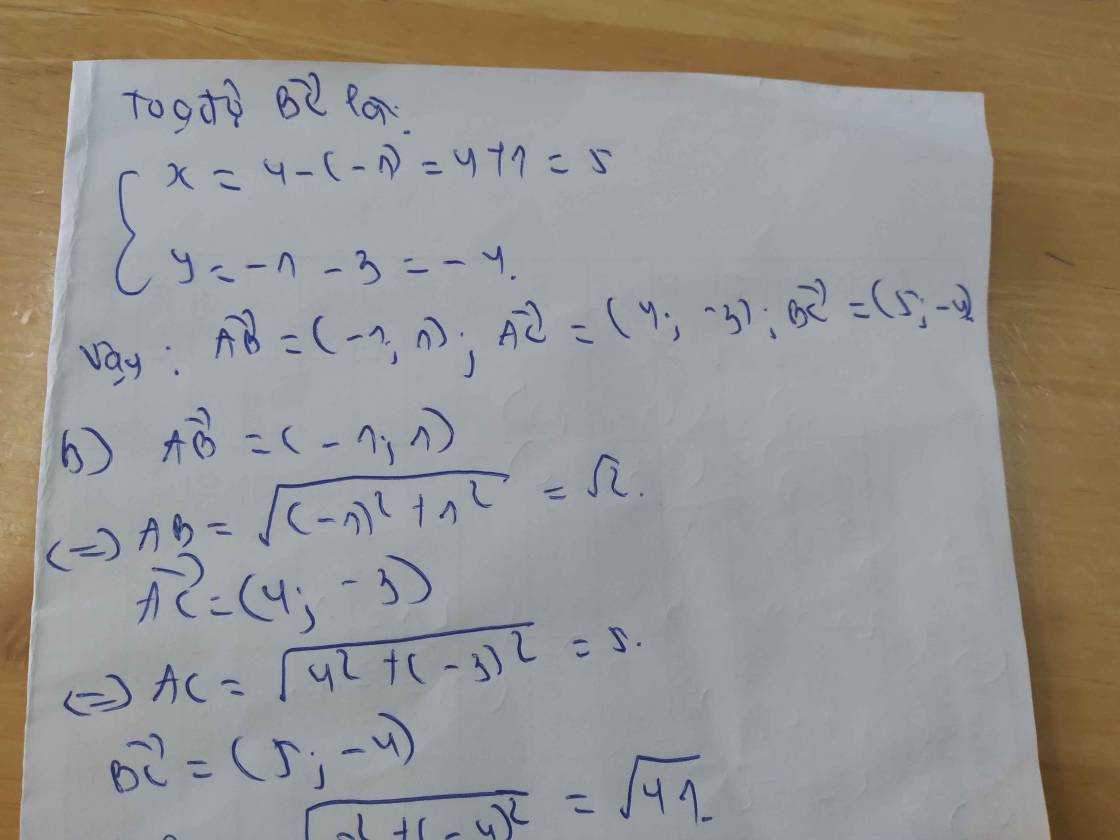 Toạ độ \overrightarrow{BC} là:
x = 4 - (-1) = 4 + 1 = 5
y = -1 - 3 = -4.
Vậy: \overrightarrow{AB} = (-1; 1); \overrightarrow{AC} = (4; -3); \overrightarrow{BC} = (5; -4)
b) \overrightarrow{AB} = (-1; 1)
(=) AB = \sqrt{(-1)^2 + 1^2} = \sqrt{2}.
\overrightarrow{AC} = (4; -3)
(=) AC = \sqrt{4^2 + (-3)^2} = 5.
\overrightarrow{BC} = (5; -4)
+ (-4)^2 = \sqrt{41}.